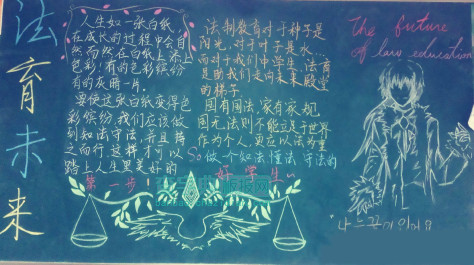 法育未来
人生如一张白纸,
在成长的过程中会自
然而然在白纸上添上
色彩!有的色彩缤纷
有的灰暗一片。
要使这张白纸变得色
彩缤纷,我们应该做
到知法守法,并且持
之而行,这样才可以
踏上人生里美好的
第一步!
法制教育对于种子是
阳光,对于叶子是水…
而对于我们中学生,法育
是助我们走向未来殿堂
的梯子
国有国法,家有家规
国无法则不能立足于世界
作为个人,更应以法为重
So做一个知法懂法守法的
好学生~
The future
of law education